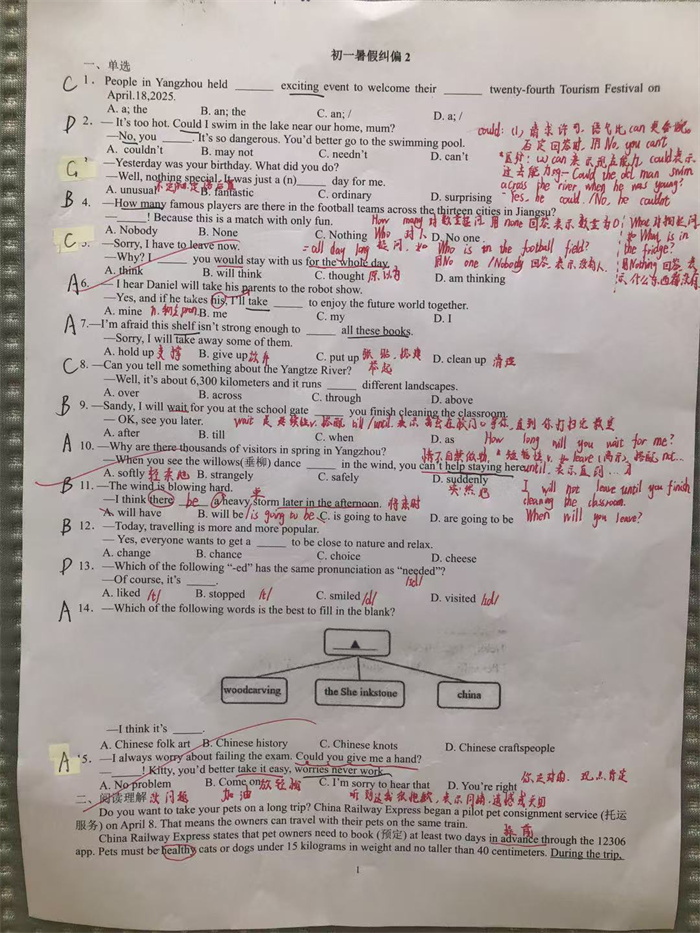 初一暑假纠偏 2
一、单选
C 1. People in Yangzhou held ______ exciting event to welcome their ______ twenty-fourth Tourism Festival on
April.18,2025.
A. a; the B. an; the C. an; / D. a; /
D 2. — It's too hot. Could I swim in the lake near our home, mum?
—No, you _____. It's so dangerous. You'd better go to the swimming pool.
A. couldn't B. may not C. needn't D. can't
could: (1) 请求许可. 语气比 can 更委婉
否定回答时, 用No, you can't
过去能力 eg— Could the old man swim
across the river when he was young?
Yes, he could. /No, he couldn't
C
—Yesterday was your birthday. What did you do?
—Well, nothing special. It was just a (n)_____ day for me.
A. unusual B. fantastic C. ordinary D. surprising
B 4. —How many famous players are there in the football teams across the thirteen cities in Jiangsu?
—_____! Because this is a match with only fun.
A. Nobody B. None C. Nothing D. No one
How many 对数量提问 用none回答 表示数量为0
Who 对人
Who is in the football field?
用No one /Nobody 回答. 表示没有人.
What is in
the fridge?
用Nothing 回答 表
C 5. —Sorry, I have to leave now.
—Why? I ____ you would stay with us for the whole day.
= all day long
A. think B. will think C. thought 原以为 D. am thinking
A 6. — I hear Daniel will take his parents to the robot show.
—Yes, and if he takes his, I'll take _____ to enjoy the future world together.
A. mine B. me C. my D. I
A 7.—I'm afraid this shelf isn't strong enough to _____ all these books.
—Sorry, I will take away some of them.
A. hold up 支撑 B. give up 放弃 C. put up 张贴. 搭建 D. clean up 清理
举起
C 8. —Can you tell me something about the Yangtze River?
—Well, it's about 6,300 kilometers and it runs _____ different landscapes.
A. over B. across C. through D. above
B 9. —Sandy, I will wait for you at the school gate _____ you finish cleaning the classroom.
— OK, see you later.
A. after B. till C. when D. as
How long will you wait for me?
A 10. —Why are there thousands of visitors in spring in Yangzhou?
—When you see the willows(垂柳) dance _____ in the wind, you can't help staying here.
A. softly 轻柔地 B. strangely C. safely D. suddenly
突然地
until. 表示直到…才
I will not leave until you finish
cleaning the classroom.
When will you leave?
B 11. —The wind is blowing hard.
—I think there be a heavy storm later in the afternoon. 将来时
A. will have B. will be /is going to be C. is going to have D. are going to be
B 12. —Today, travelling is more and more popular.
— Yes, everyone wants to get a _____ to be close to nature and relax.
A. change B. chance C. choice D. cheese
D 13. —Which of the following "-ed" has the same pronunciation as "needed"?
/ɪd/
—Of course, it's _____.
A. liked /t/ B. stopped /t/ C. smiled /d/ D. visited /ɪd/
A 14. —Which of the following words is the best to fill in the blank?
▲
woodcarving the She inkstone china
—I think it's _____.
A. Chinese folk art B. Chinese history C. Chinese knots D. Chinese craftspeople
A 5. —I always worry about failing the exam. Could you give me a hand?
—_____! Kitty, you'd better take it easy, worries never work.
A. No problem B. Come on 放轻松 C. I'm sorry to hear that D. You're right
没问题 加油
你是对的. 观点肯定
二、阅读理解
Do you want to take your pets on a long trip? China Railway Express began a pilot pet consignment service (托运
服务) on April 8. That means the owners can travel with their pets on the same train.
提前
China Railway Express states that pet owners need to book (预定) at least two days in advance through the 12306
app. Pets must be healthy cats or dogs under 15 kilograms in weight and no taller than 40 centimeters. During the trip,
1